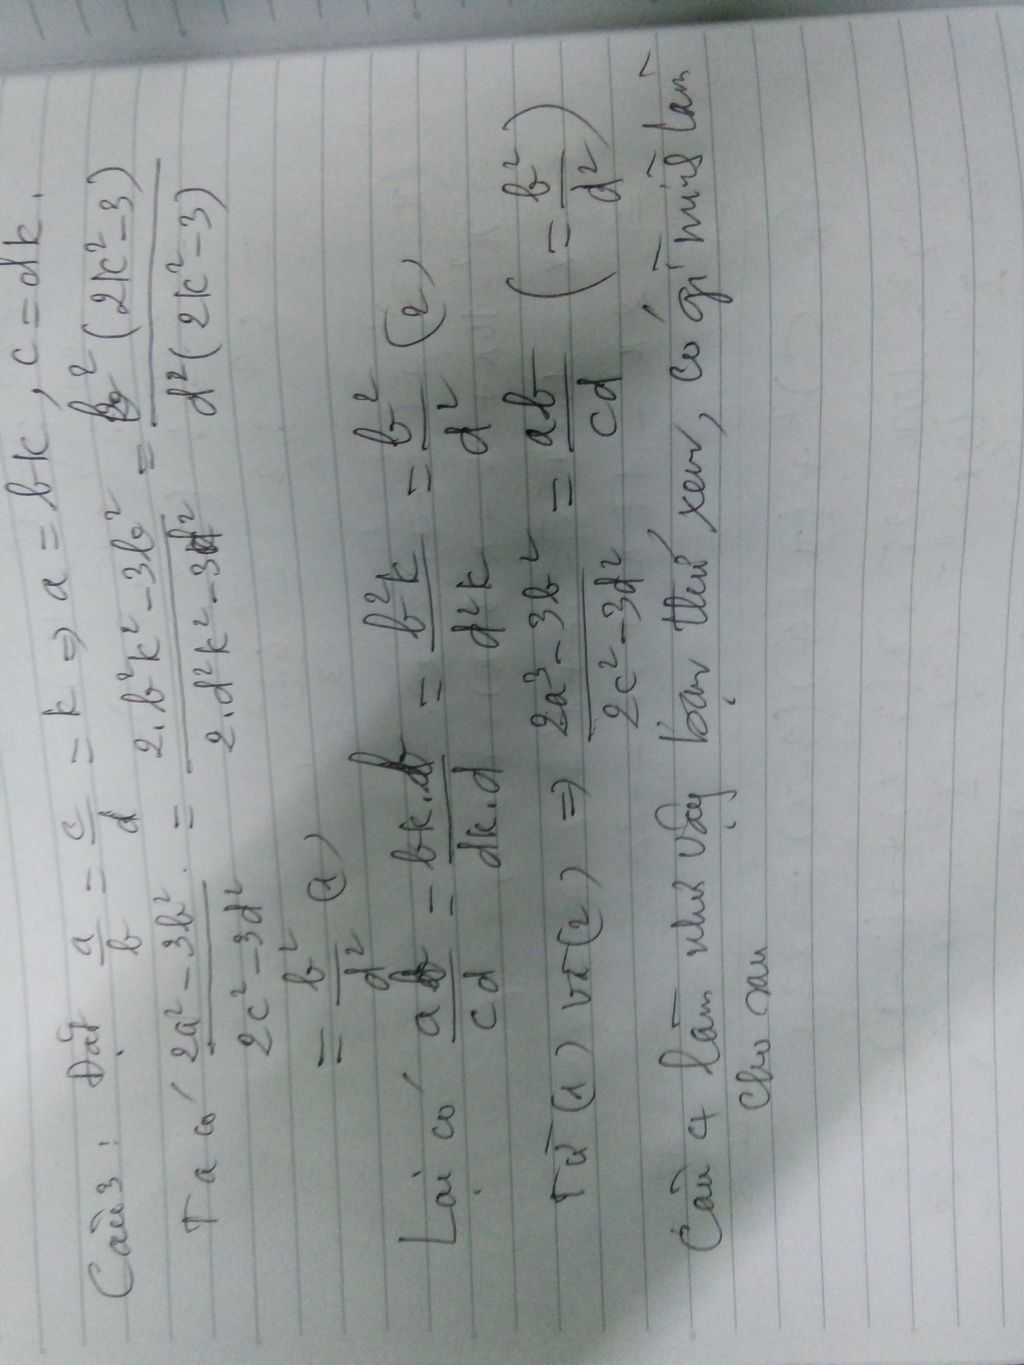 Câu 3 : Đặt a/b = c/d = k ⇒ a = bk , c = dk .
Ta có (2a² - 3b²)/(2c² - 3d²) = (2.b²k² - 3b²)/(2.d²k² - 3d²) = b²(2k² - 3)/d²(2k² - 3)
= b²/d² (1)
Lại có ab/cd = bk.b/dk.d = b²k/d²k = b²/d² (2)
Từ (1) và (2) ⇒ (2a² - 3b²)/(2c² - 3d²) = ab/cd ( = b²/d² )
Câu 4 làm như vậy bạn thử xem, có gì mình làm
cho sau